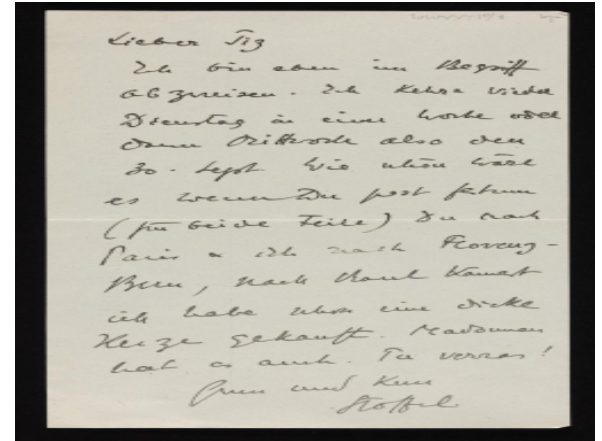 Lieber Tiz
Ich bin eben im Begriff
abzureisen. Ich kehre wieder
Dienstag in einer Woche oder
dann Mittwoch also den
30. Sept. Wie schön wäre
es wenn Du post fatum
(für beide Teile) Du nach
Paris & ich nach Florenz -
Bern, nach kamst
ich habe schon eine dicke
Kerze gekauft. Madonnen
hat es auch. Tu verras!
und
Stoffel